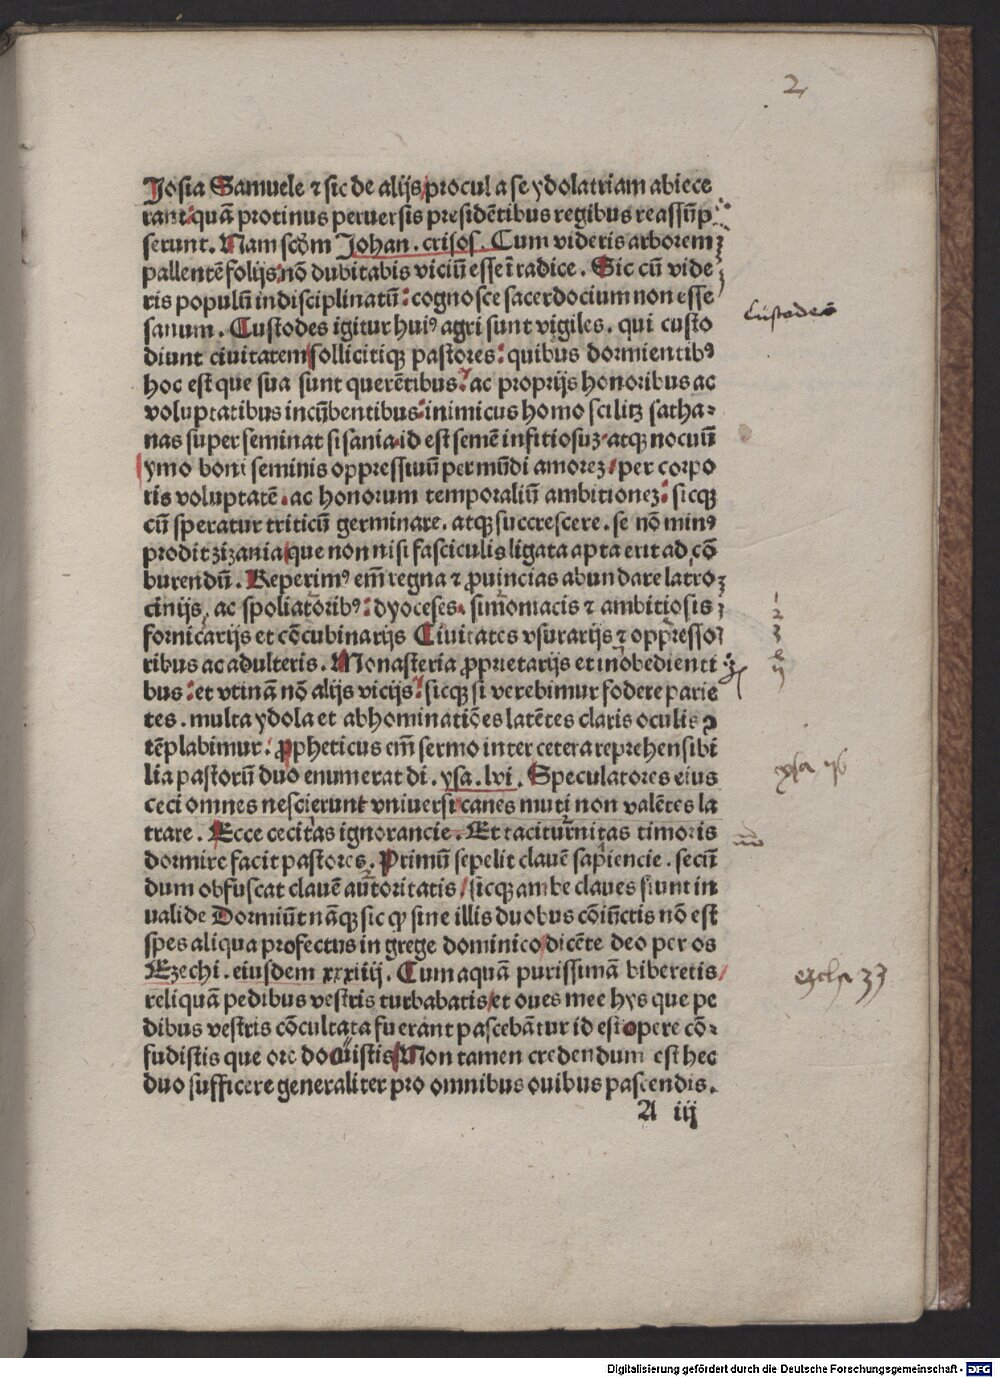 2
Josia Samuele ⁊ sic de alijs procul a se ydolatriam abiece
rant quā protinus peruersis presidētibus regibus reassūp
serunt. Nam scḋm Johan. crisos. Cum videris arborem
pallentē folijs nō dubitabis viciū esse ī radice. Sic cū vide
ris populū indisciplinatū: cognosce sacerdocium non esse
sanum. Custodes igitur huiꝰ agri sunt vigiles. qui custo
Custodes
diunt ciuitatem sollicitiqꝫ pastores: quibus dormientibꝰ
hoc est que sua sunt querētibus: ac proprijs honoribus ac
voluptatibus incūbentibus: inimicus homo scilitꝫ satha-
nas super seminat sisania id est semē infitiosuꝫ atqꝫ nocuū
ymo boni seminis oppressiuū per mūdi amoreꝫ: per corpo
ris voluptatē. ac honorum temporaliū ambitioneꝫ: sicqꝫ
cū speratur triticū germinare. atqꝫ succrescere. se nō minꝰ
prodit zizania que non nisi fasciculis ligata apta erit ad cō
burendū. Reperimꝰ em̄ regna ⁊ ꝓuincias abundare latro
cinijs, ac spoliatoribꝰ: dyoceses. simoniacis ⁊ ambitiosis
fornicarijs et cōcubinarijs Ciuitates vsurarijs ⁊ oppresso
ribus ac adulteris. Monasteria ꝓprietarijs et inobedienti
bus: et vtinā nō alijs vicijs: sicqꝫ si verebimur fodere parie
tes. multa ydola et abhominatiōes latētes claris oculis ꝯ
tēplabimur. ꝓpheticus em̄ sermo inter cetera reprehensibi
lia pastorū duo enumerat di. ysa. lvi. Speculatores eius
ysa 56
ceci omnes nescierunt vniuersi canes muti non valētes la
trare. Ecce cecitas ignorancie. Et taciturnitas timoris
dormire facit pastores. Primū sepelit clauē sapiencie. secū
dum obfuscat clauē autoritatis / sicqꝫ ambe claues fiunt in
valide Dormiūt nāqꝫ sic qꝫ sine illis duobus cōiūctis nō est
spes aliqua profectus in grege dominico dicēte deo per os
Ezechi. eiusdem xxxiiij. Cum aquam purissimā biberetis
ezch 33
reliquā pedibus vestris turbabatis et oues mee hys que pe
dibus vestris cōcultata fuerant pascebātur id est opere cō-
fudistis que ore docuistis Non tamen credendum est hec
duo sufficere generaliter pro omnibus ouibus pascendis.
A iij
Digitalisierung gefördert durch die Deutsche Forschungsgemeinschaft - DFG